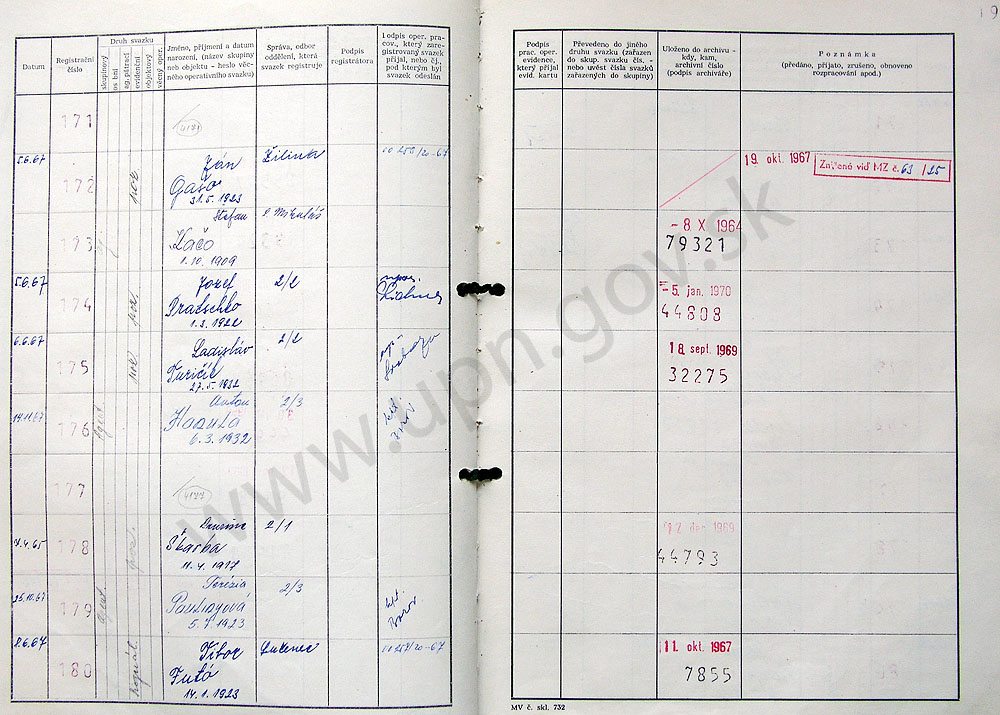 Datum
Registrační
číslo
Druh svazku
skupinový
osobní
ag. pátrací
evidenční
objektový
věcný oper.
Jméno, příjmení a datum
narození, (název skupiny
nebo objektu - heslo věc-
ného operativního svazku)
Správa, odbor
oddělení, která
svazek registruje
Podpis
registrátora
Podpis oper. pra-
cov., který zare-
gistrovaný svazek
přijal, nebo čj.,
pod kterým byl
svazek odeslán
Podpis
prac. oper.
evidence,
který přijal
evid. kartu
Převedeno do jiného
druhu svazku (zařazen
do skup. svazku čís. -
nebo uvést čísla svazků
zařazených do skupiny)
Uloženo do archivu -
kdy, kam,
archivní číslo
(podpis archiváře)
Poznámka
(předáno, přijato, zrušeno, obnoveno
rozpracování apod.)
19
171
4171
5.6.67
172
Ján
Gašo
31.5.1923
Žilina
19. okt. 1967
Zničené viď MZ č. 63/25
173
Štefan
Kačo
1.10.1909
L. Mikuláš
-8 X 1964
79321
5.6.67
174
Jozef
Bratschko
1.3.1922
2/2
-5. jan. 1970
44808
6.6.67
175
Ladislav
Ďuričik
27.5.1932
2/2
18. sept. 1969
32275
14.11.67
176
agent
Anton
Hanula
6.3.1932
2/3
177
4177
178
Škarba
11.4.1917
2/1
44793
25.10.67
179
agent
Terézia
5.7.1923
2/3
8.6.67
180
Tibor
Futó
14.1.1923
Lučenec
11. okt. 1967
7855
MV č. skl. 732
www.upn.gov.sk